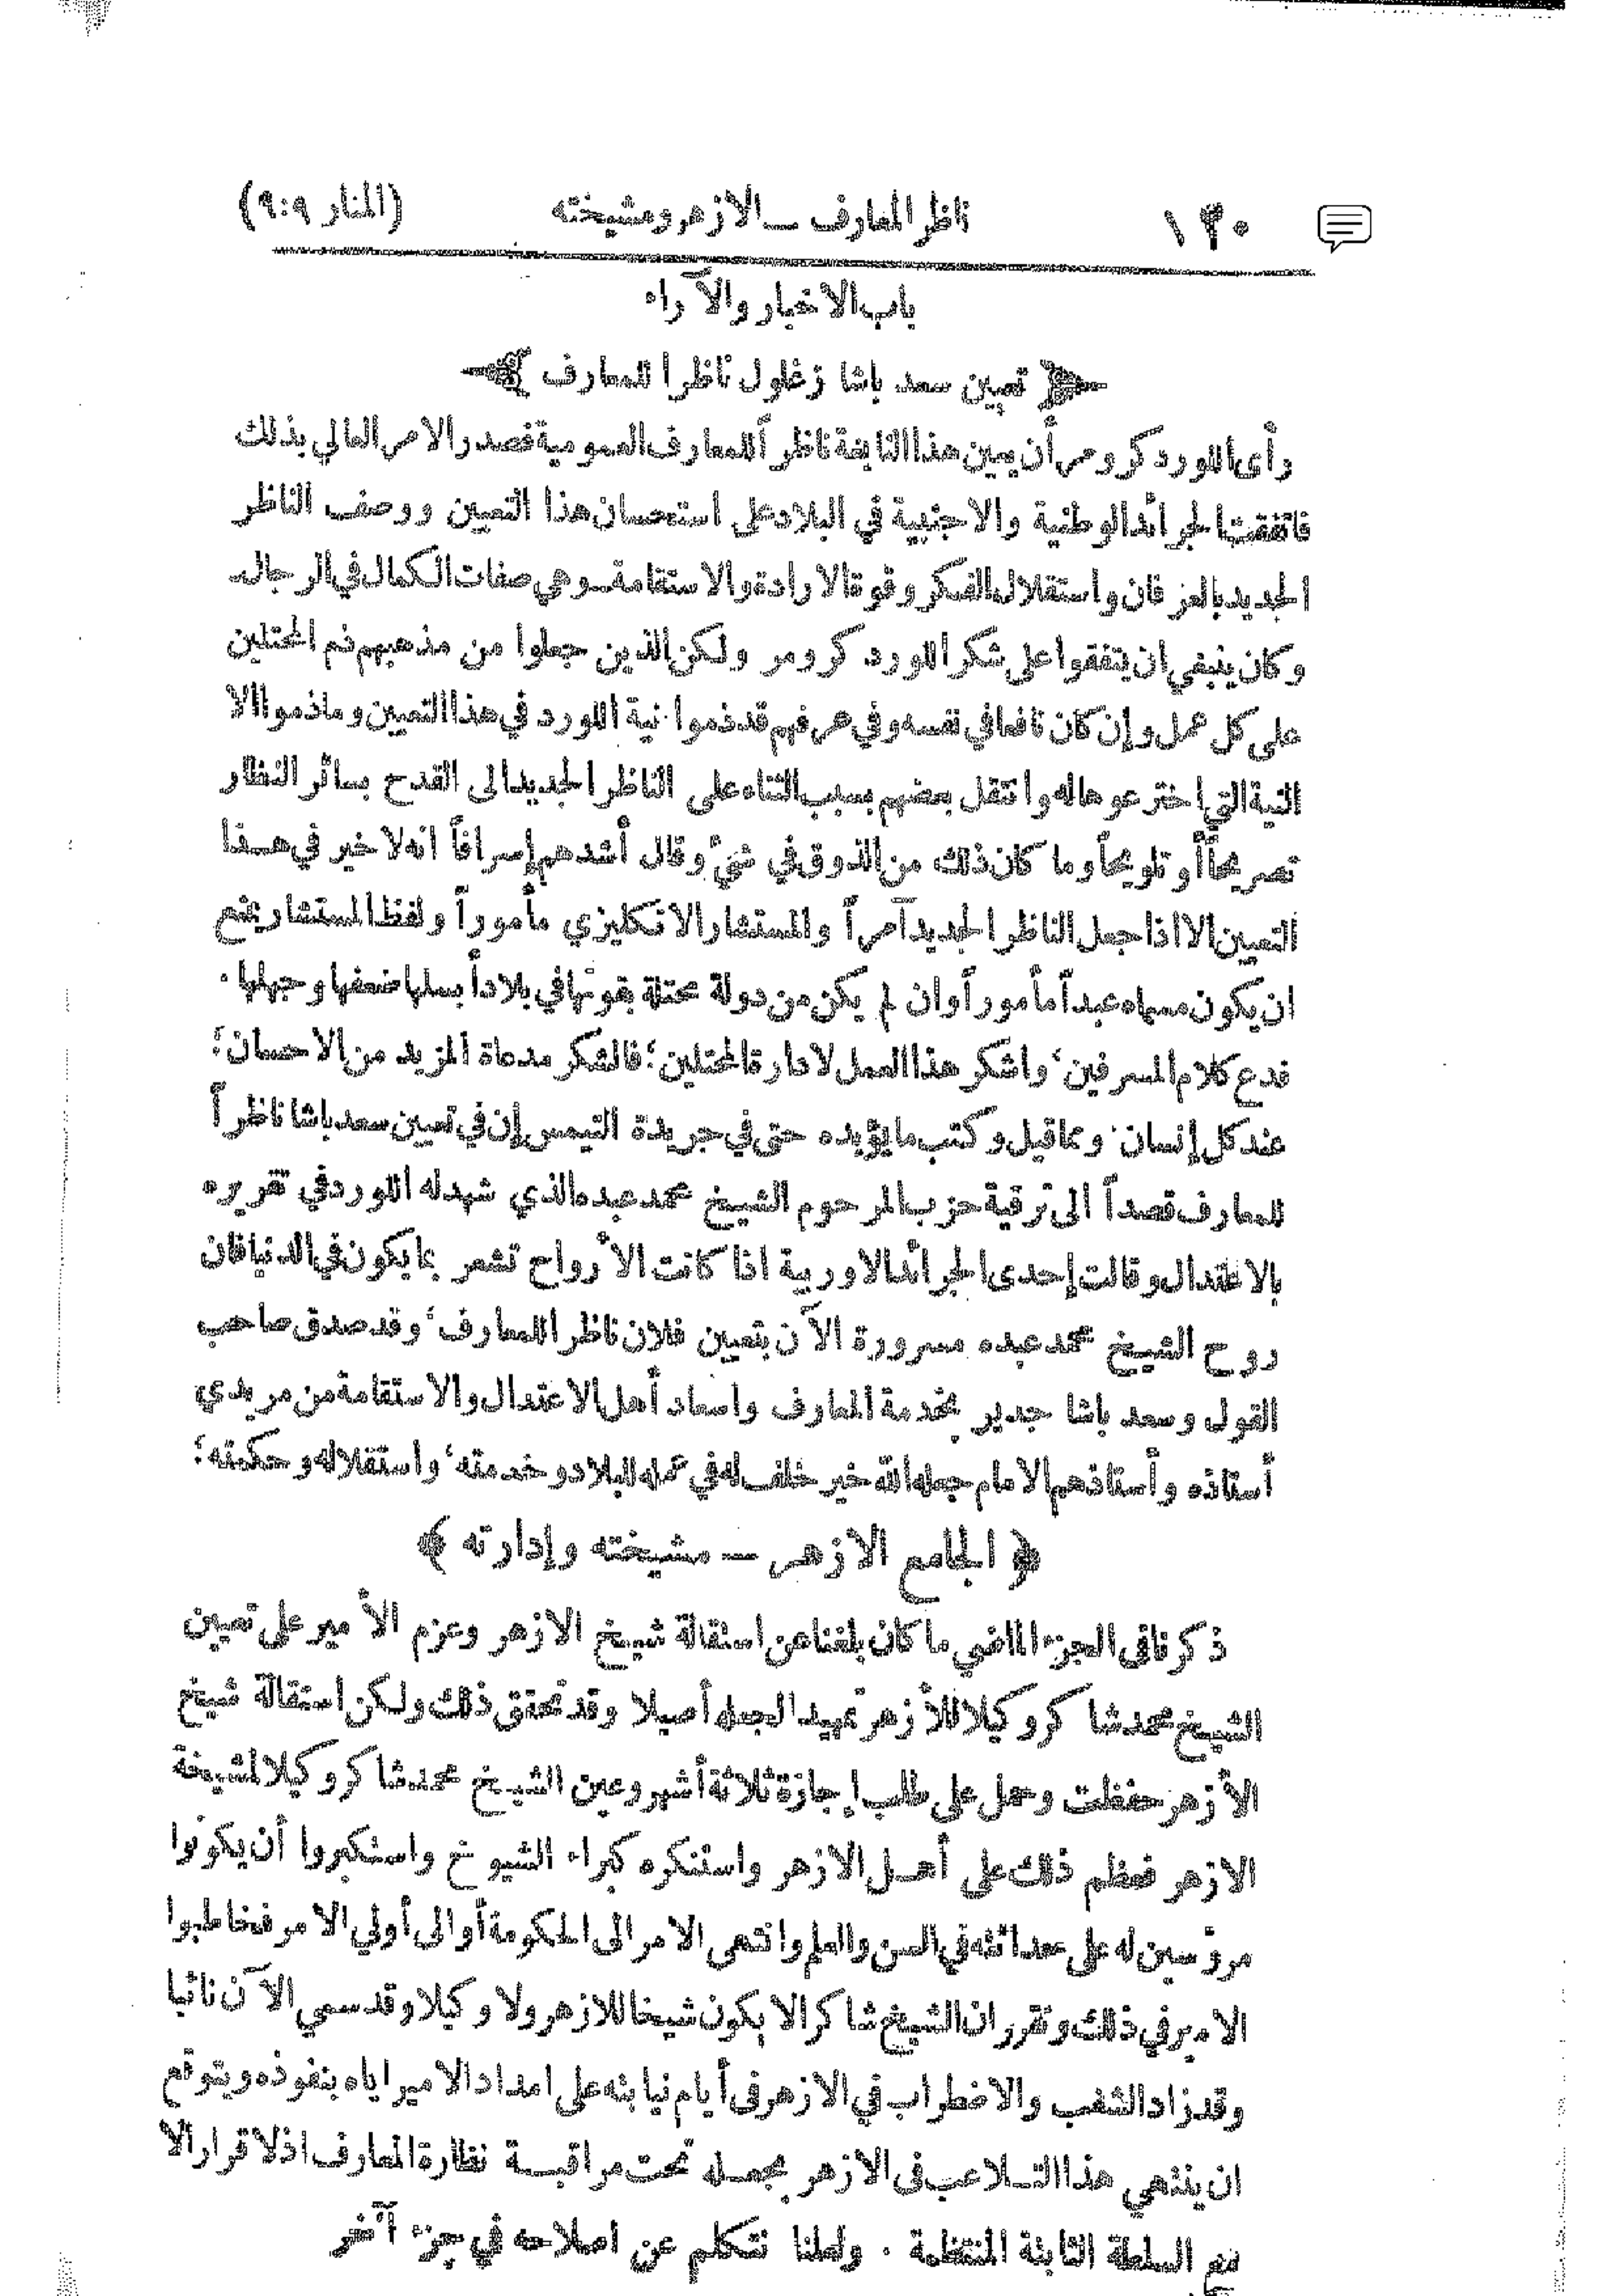 ٧٢٠ ناظر المعارف – الازهر ومشيخته (المنار ٩:٩)
باب الاخبار والآراء
﴿ تعيين سعد باشا زغلول ناظرا للمعارف ﴾
رأى اللورد كرومر أن يعين هذا النابغة ناظراً للمعارف العمومية فصدر الامر العالي بذلك
فاتفقت الجرائد الوطنية والاجنبية في البلاد على استحسان هذا التعيين ووصف الناظر
الجديد بالعرفان واستقلال الفكر وقوة الارادة والاستقامة – وهي صفات الكمال في الرجال –
وكان ينبغي ان يتفقوا على شكر اللورد كرومر ولكن الذين جعلوا من مذهبهم ذم المحتلين
على كل عمل وإن كان نافعا في نفسه وفي عرفهم قد ذموا نية اللورد في هذا التعيين وما ذموا الا
النية التي اخترعوها له وانتقل بعضهم بسبب الثناء على الناظر الجديد الى القدح بسائر النظار
تصريحاً أو تلويحاً وما كان ذلك من الذوق في شيء وقال أشدهم إسرافاً انه لا خير في هذا
التعيين الا اذا جعل الناظر الجديد آمراً والمستشار الانكليزي مأموراً ولفظ المستشار يمنع
ان يكون مسماه عبداً مأموراً وان لم يكن من دولة محتلة بقوتها في بلاد أبسلها ضعفها وجهلها .
فدع كلام المسرفين، واشكر هذا العمل لادارة المحتلين؛ فالشكر مدعاة المزيد من الاحسان؛
عند كل إنسان . ومما قيل وكتب ما يؤيده حتى في جريدة التيمس إن في تعيين سعد باشا ناظراً
للمعارف قصداً الى ترقية حزب المرحوم الشيخ محمد عبده الذي شهد له اللورد في تقريره
بالاعتدال وقالت إحدى الجرائد الاوربية اذا كانت الأرواح تشعر بما يكون في الدنيا فان
روح الشيخ محمد عبده مسرورة الآن بتعيين فلان ناظرا للمعارف، وقد صدق صاحب
القول وسعد باشا جدير بخدمة المعارف واسعاد أهل الاعتدال والاستقامة من مريدي
أستاذه وأستاذهم الامام جعله الله خير خلف له في عمله للبلاد وخدمته، واستقلاله وحكمته؛
﴿ الجامع الازهر – مشيخته وإدارته ﴾
ذكرنا في الجزء الماضي ما كان بلغنا عن استقالة شيخ الازهر وعزم الأمير على تعيين
الشيخ محمد شاكر وكيلا للأزهر تمهيدا لجعله أصيلا وقد تحقق ذلك ولكن استقالة شيخ
الأزهر حفظت وحمل على طلب إجازة ثلاثة أشهر وعين الشيخ محمد شاكر وكيلا لمشيخة
الازهر فعظم ذلك على أهل الازهر واستنكره كبراء الشيوخ واستكبروا أن يكونوا
مرؤسين له على حداثته في السن والعلم وانتهى الامر الى الحكومة أو الى أولي الامر فخاطبوا
الامير في ذلك وتقرر ان الشيخ شاكر الا يكون شيخا للازهر ولا وكيلا وقد سمي الآن نائبا
وقد زاد الشغب والاضطراب في الازهر في أيام نيابته على امداد الامير اياه بنفوذه ويتوقع
ان ينتهي هذا التلاعب في الازهر بجعله تحت مراقبة نظارة المعارف اذ لا قرار الا
مع السلطة الثابتة المنتظمة . ولعلنا نتكلم عن اصلاحه في جزء آخر